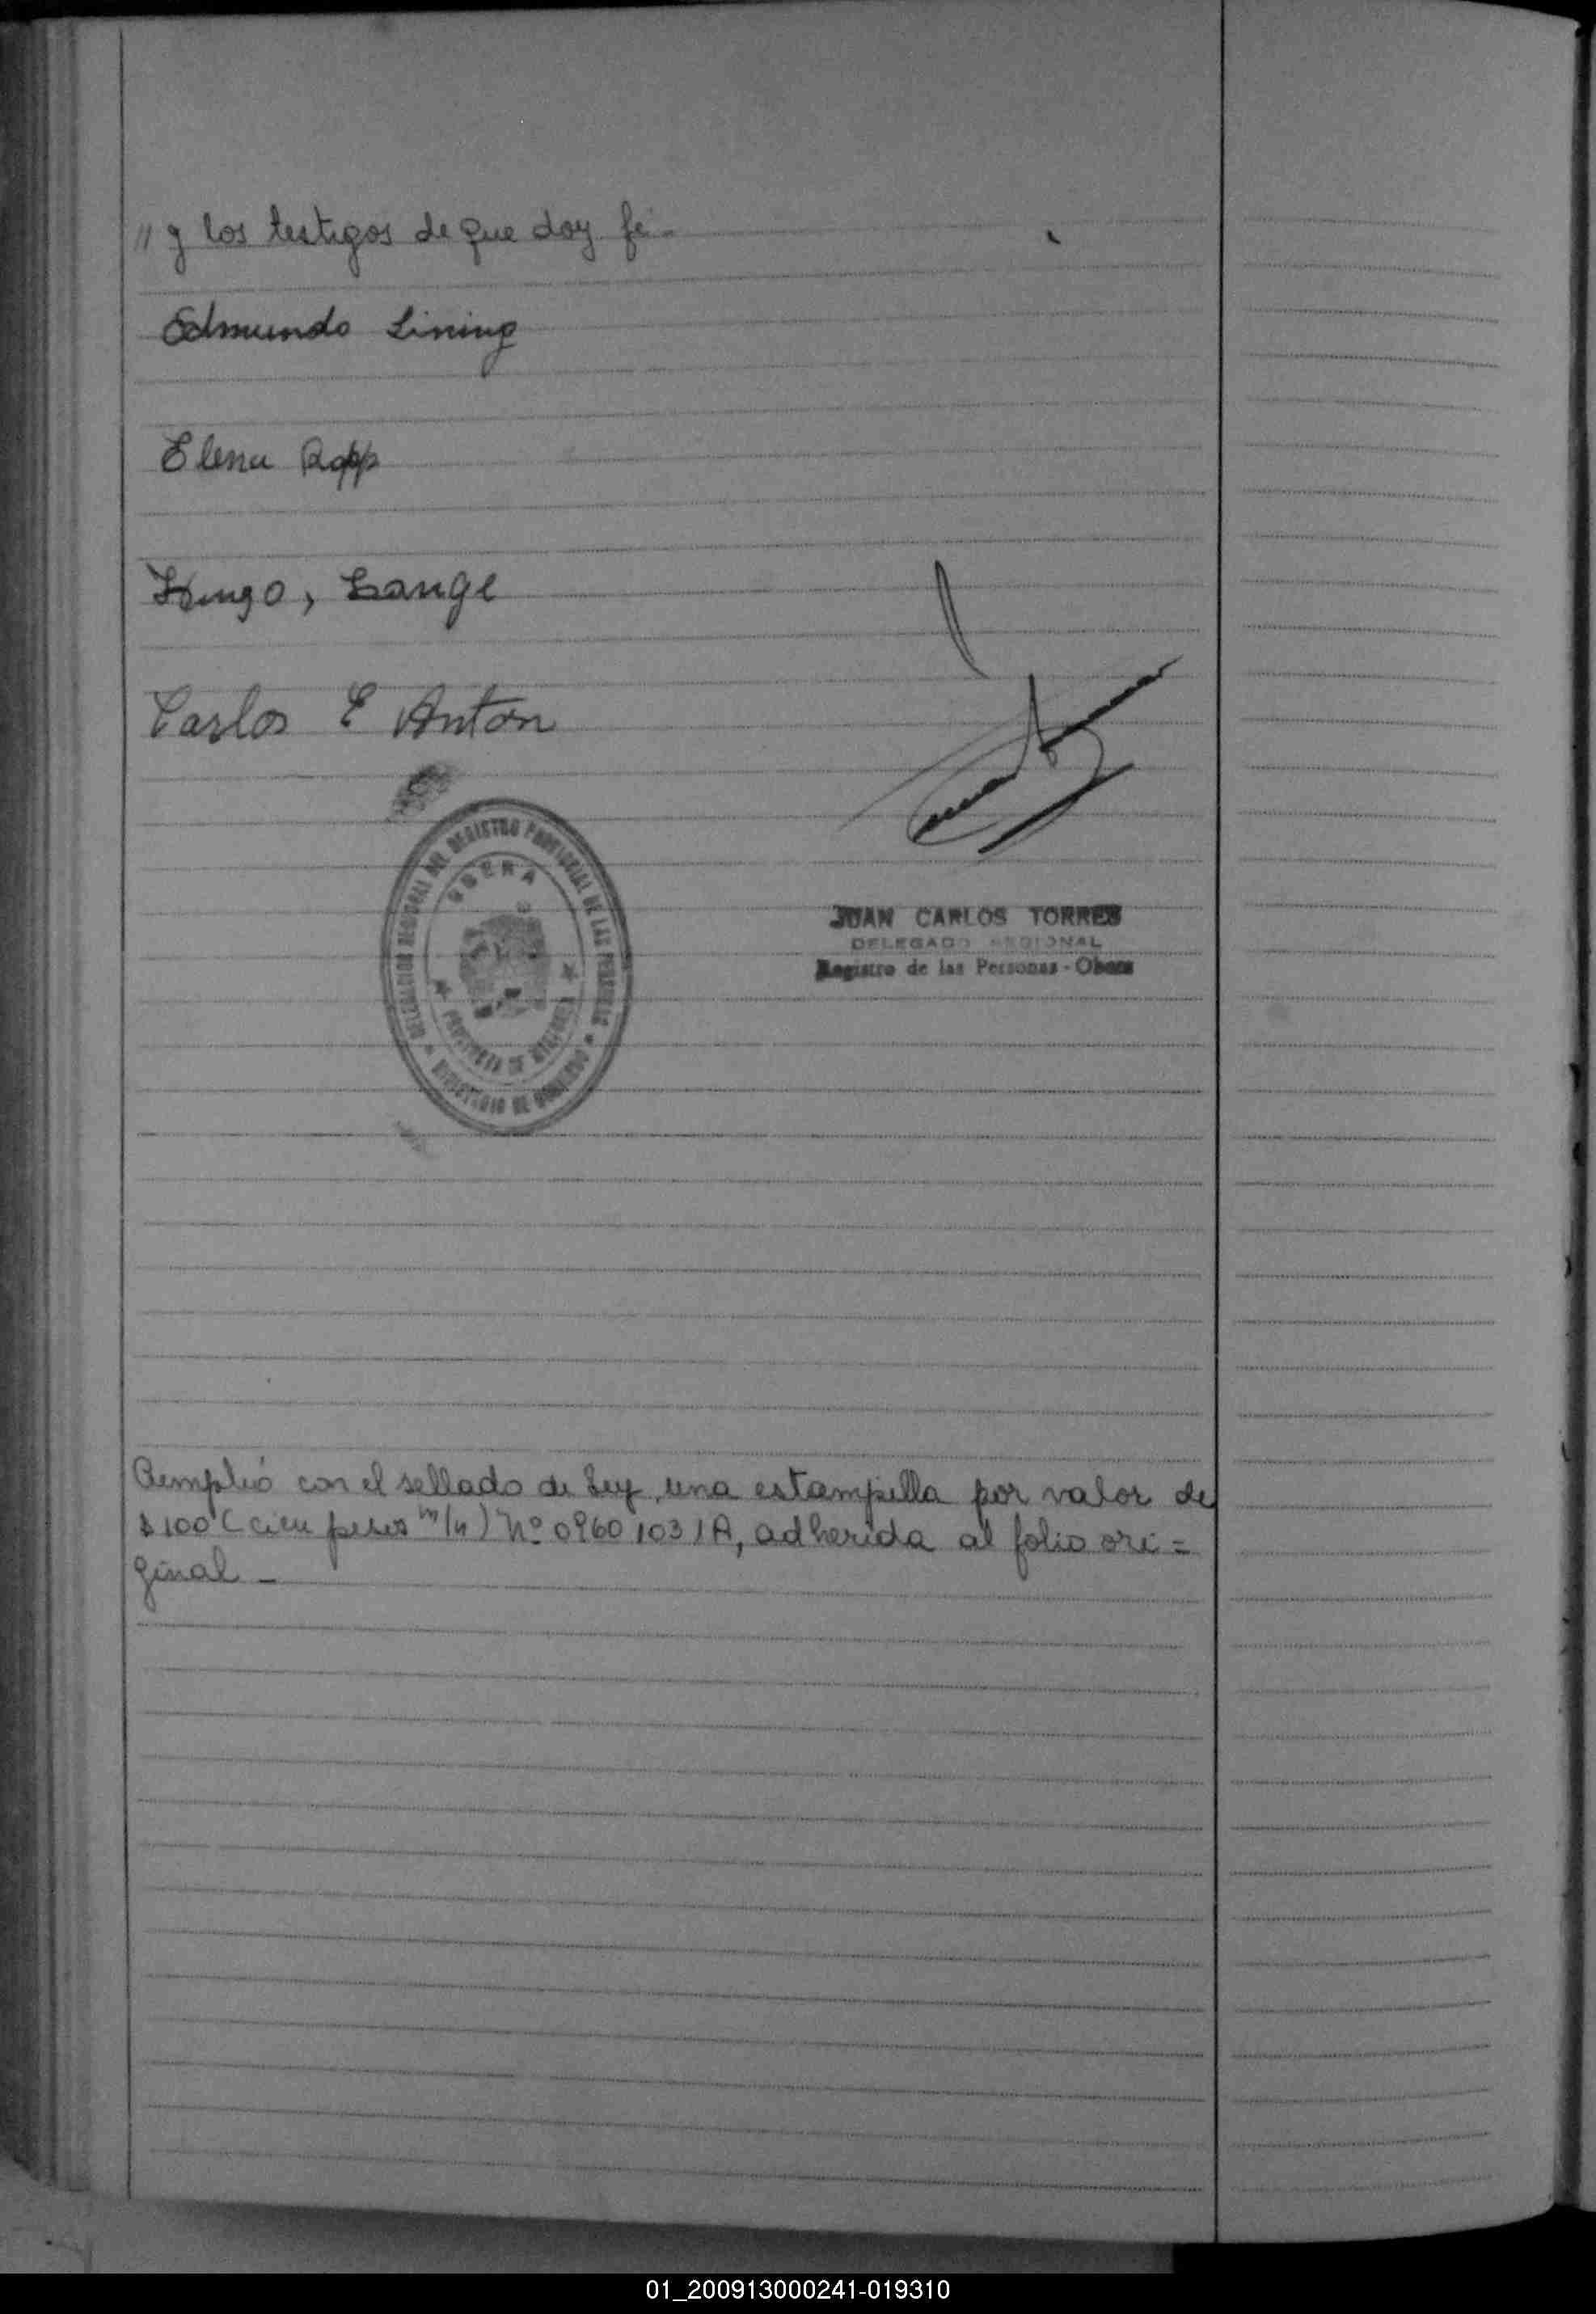 " y los testigos de que doy fé.-
Edmundo Lining
Elena Rapp
Hugo, Lange
Carlos E Anton
DELEGACION REGIONAL DEL REGISTRO PROVINCIAL DE LAS PERSONAS
OBERA
PROVINCIA DE MISIONES
MINISTERIO DE GOBIERNO
JUAN CARLOS TORRES
DELEGADO REGIONAL
Registro de las Personas - Obera
con el sellado de Ley, una estampilla por valor de
$ 100 (cien pesos m/n) Nº 09601031A, adherida al folio ori=
ginal -
01_200913000241-019310